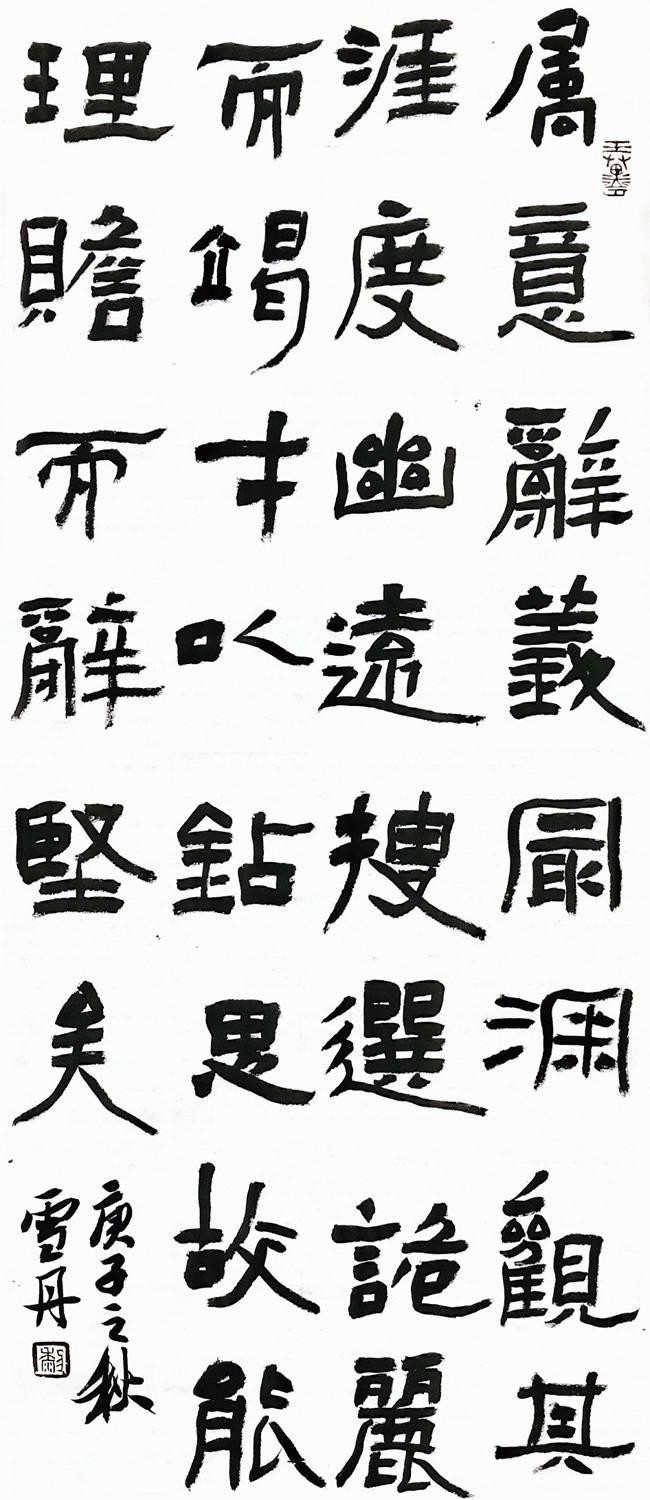 属意辭義冣渊觀其
涯度幽遠搜選詭麗
而竭才以鉆思故能
理贍而辭堅矣
庚子之秋
雪丹